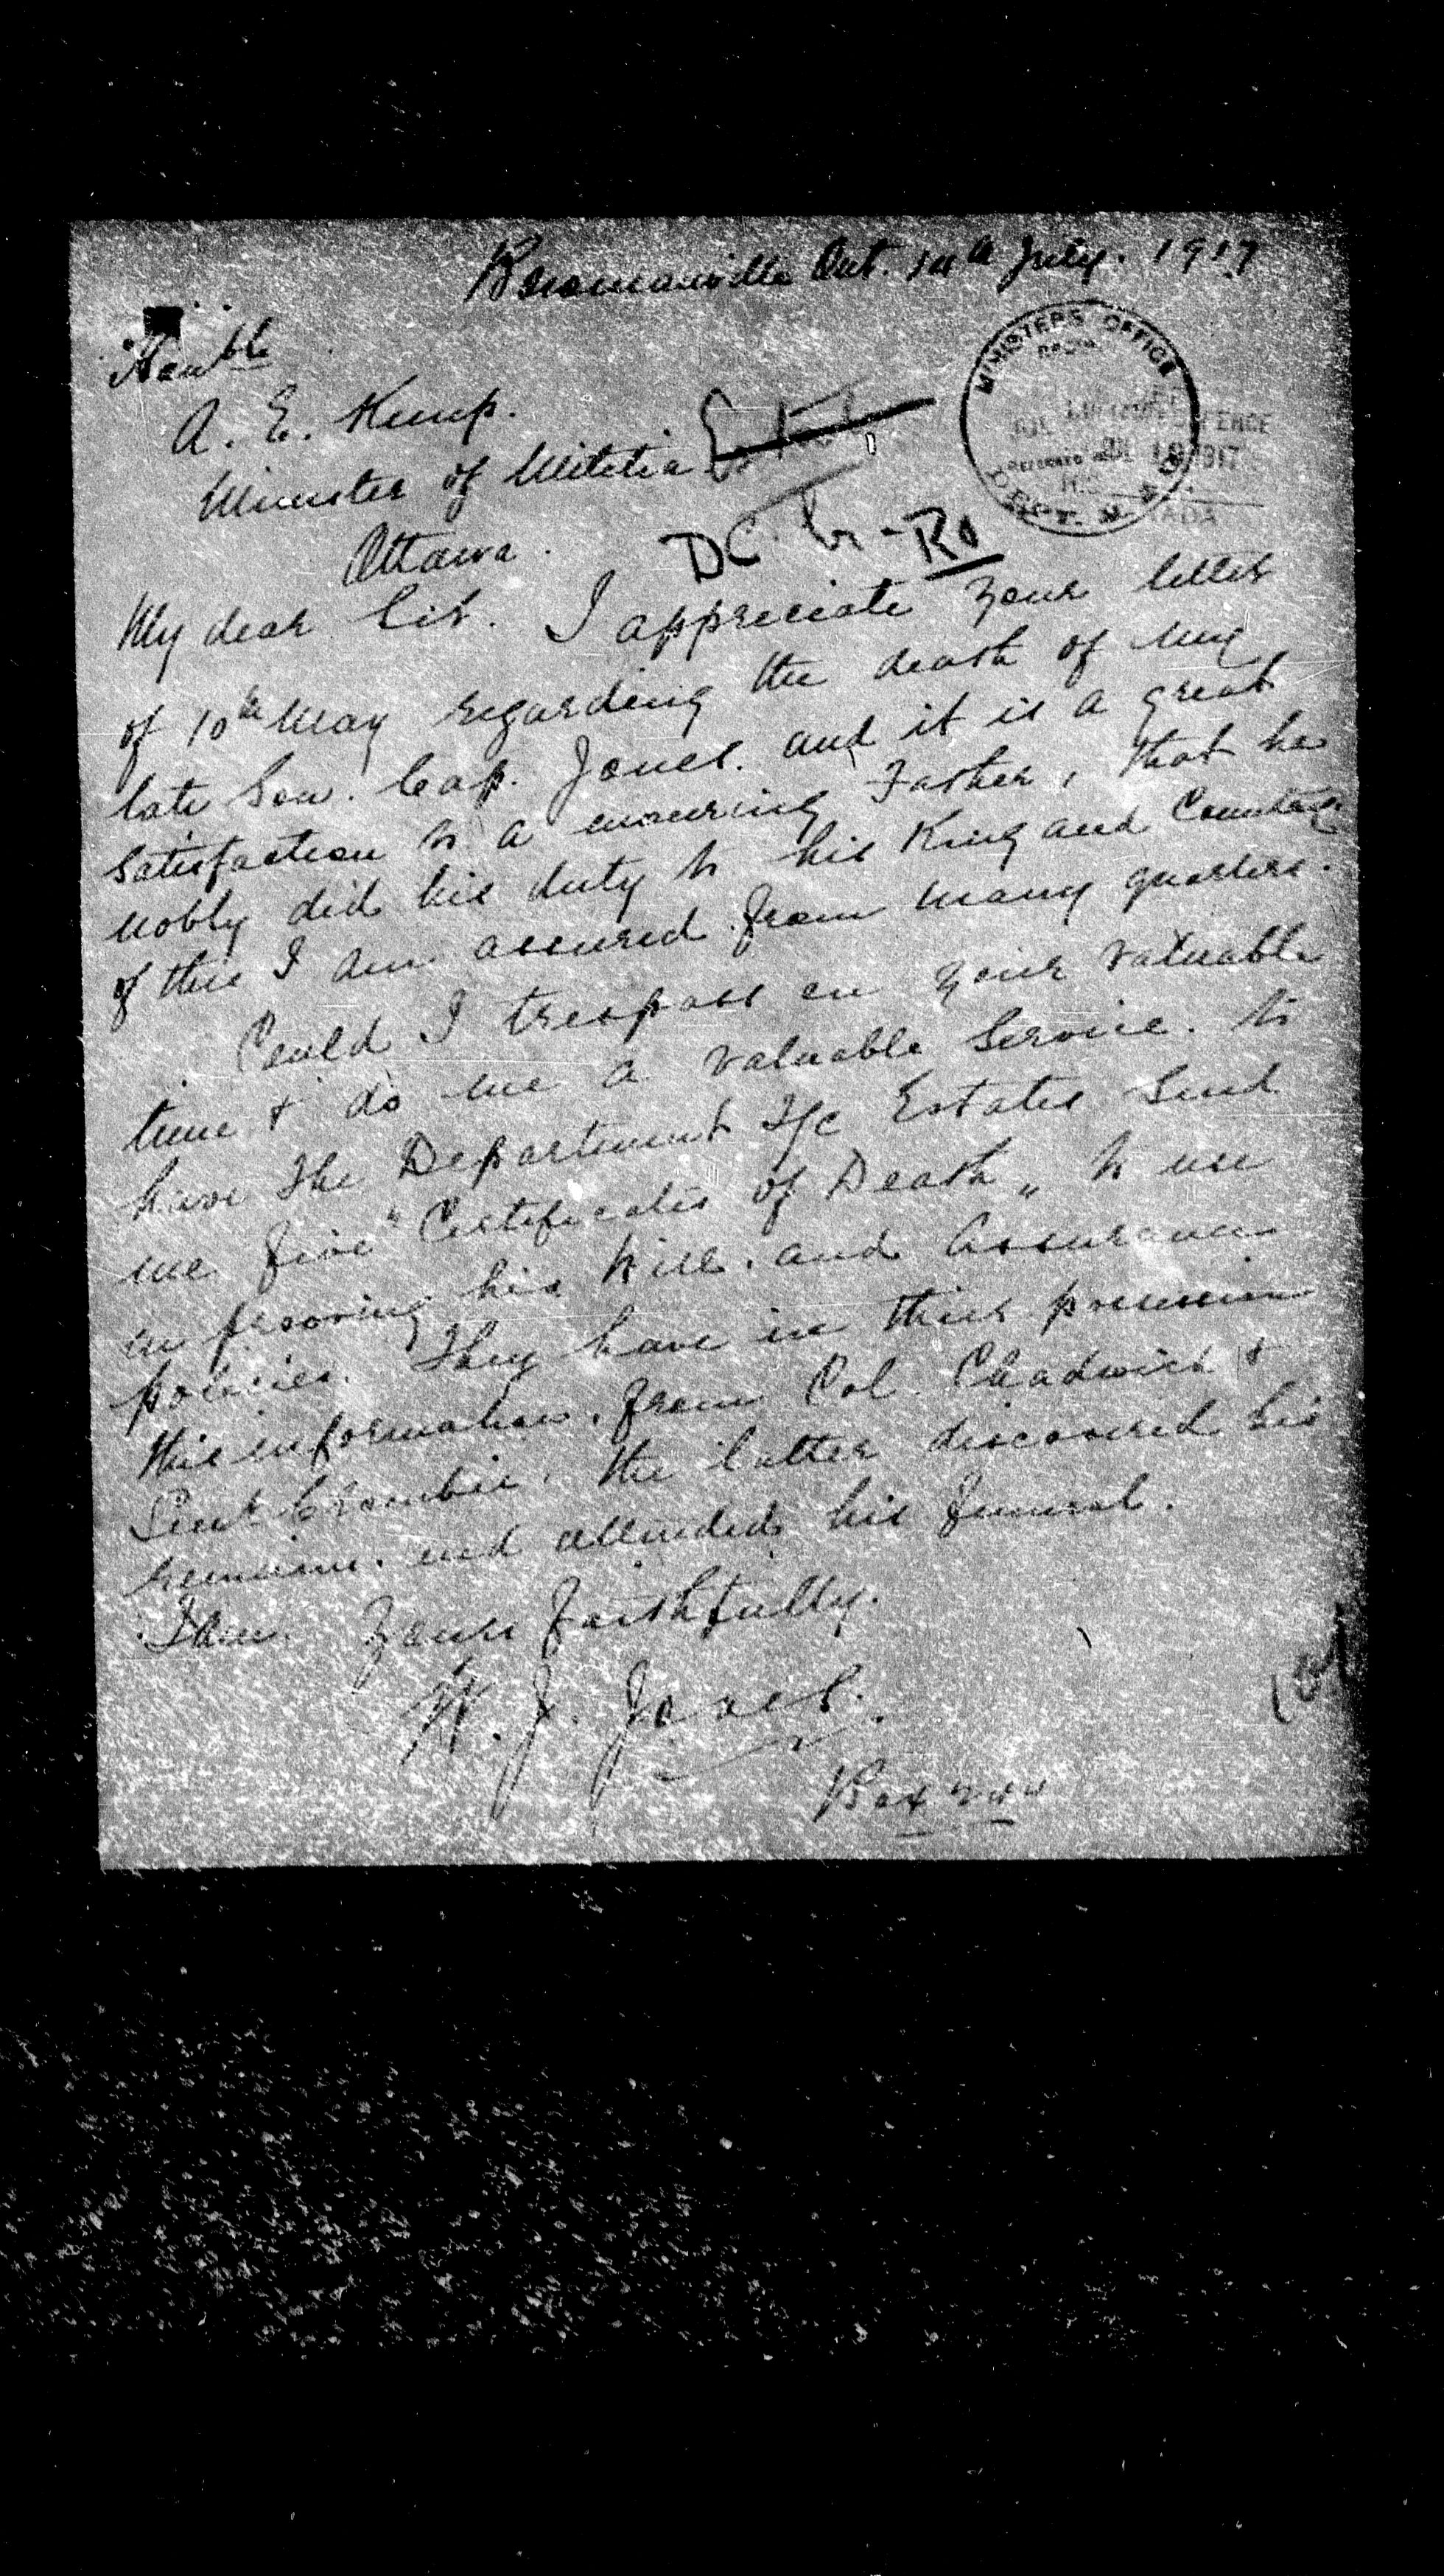 Bowmanville Ont. 14th July. 1917
Honble
A. E. Kemp.
Minister of Militia
Ottawa.
MINISTERS OFFICE
DEPT.
DC
My dear Sir. I appreciate your letter
of 10th May regarding the death of my
late Son. Cap. Jones. and it is a great
satisfaction to a mourning Father, that he
nobly did his duty to his King and Country.
of this I am assured from many quarters.
Could I trespass on your valuable
time & do me a valuable Service. to
have The Department I/c Estates Send
me five "Certificates of Death" to use
in prooving his Will. and Assurance
policies. They have in their possession
this information. from Col. Chadwick &
Lieut Crombie. the latter discovered his
remains. and attended his funeral.
I am. Yours Faithfully.
W. J. Jones.
Box